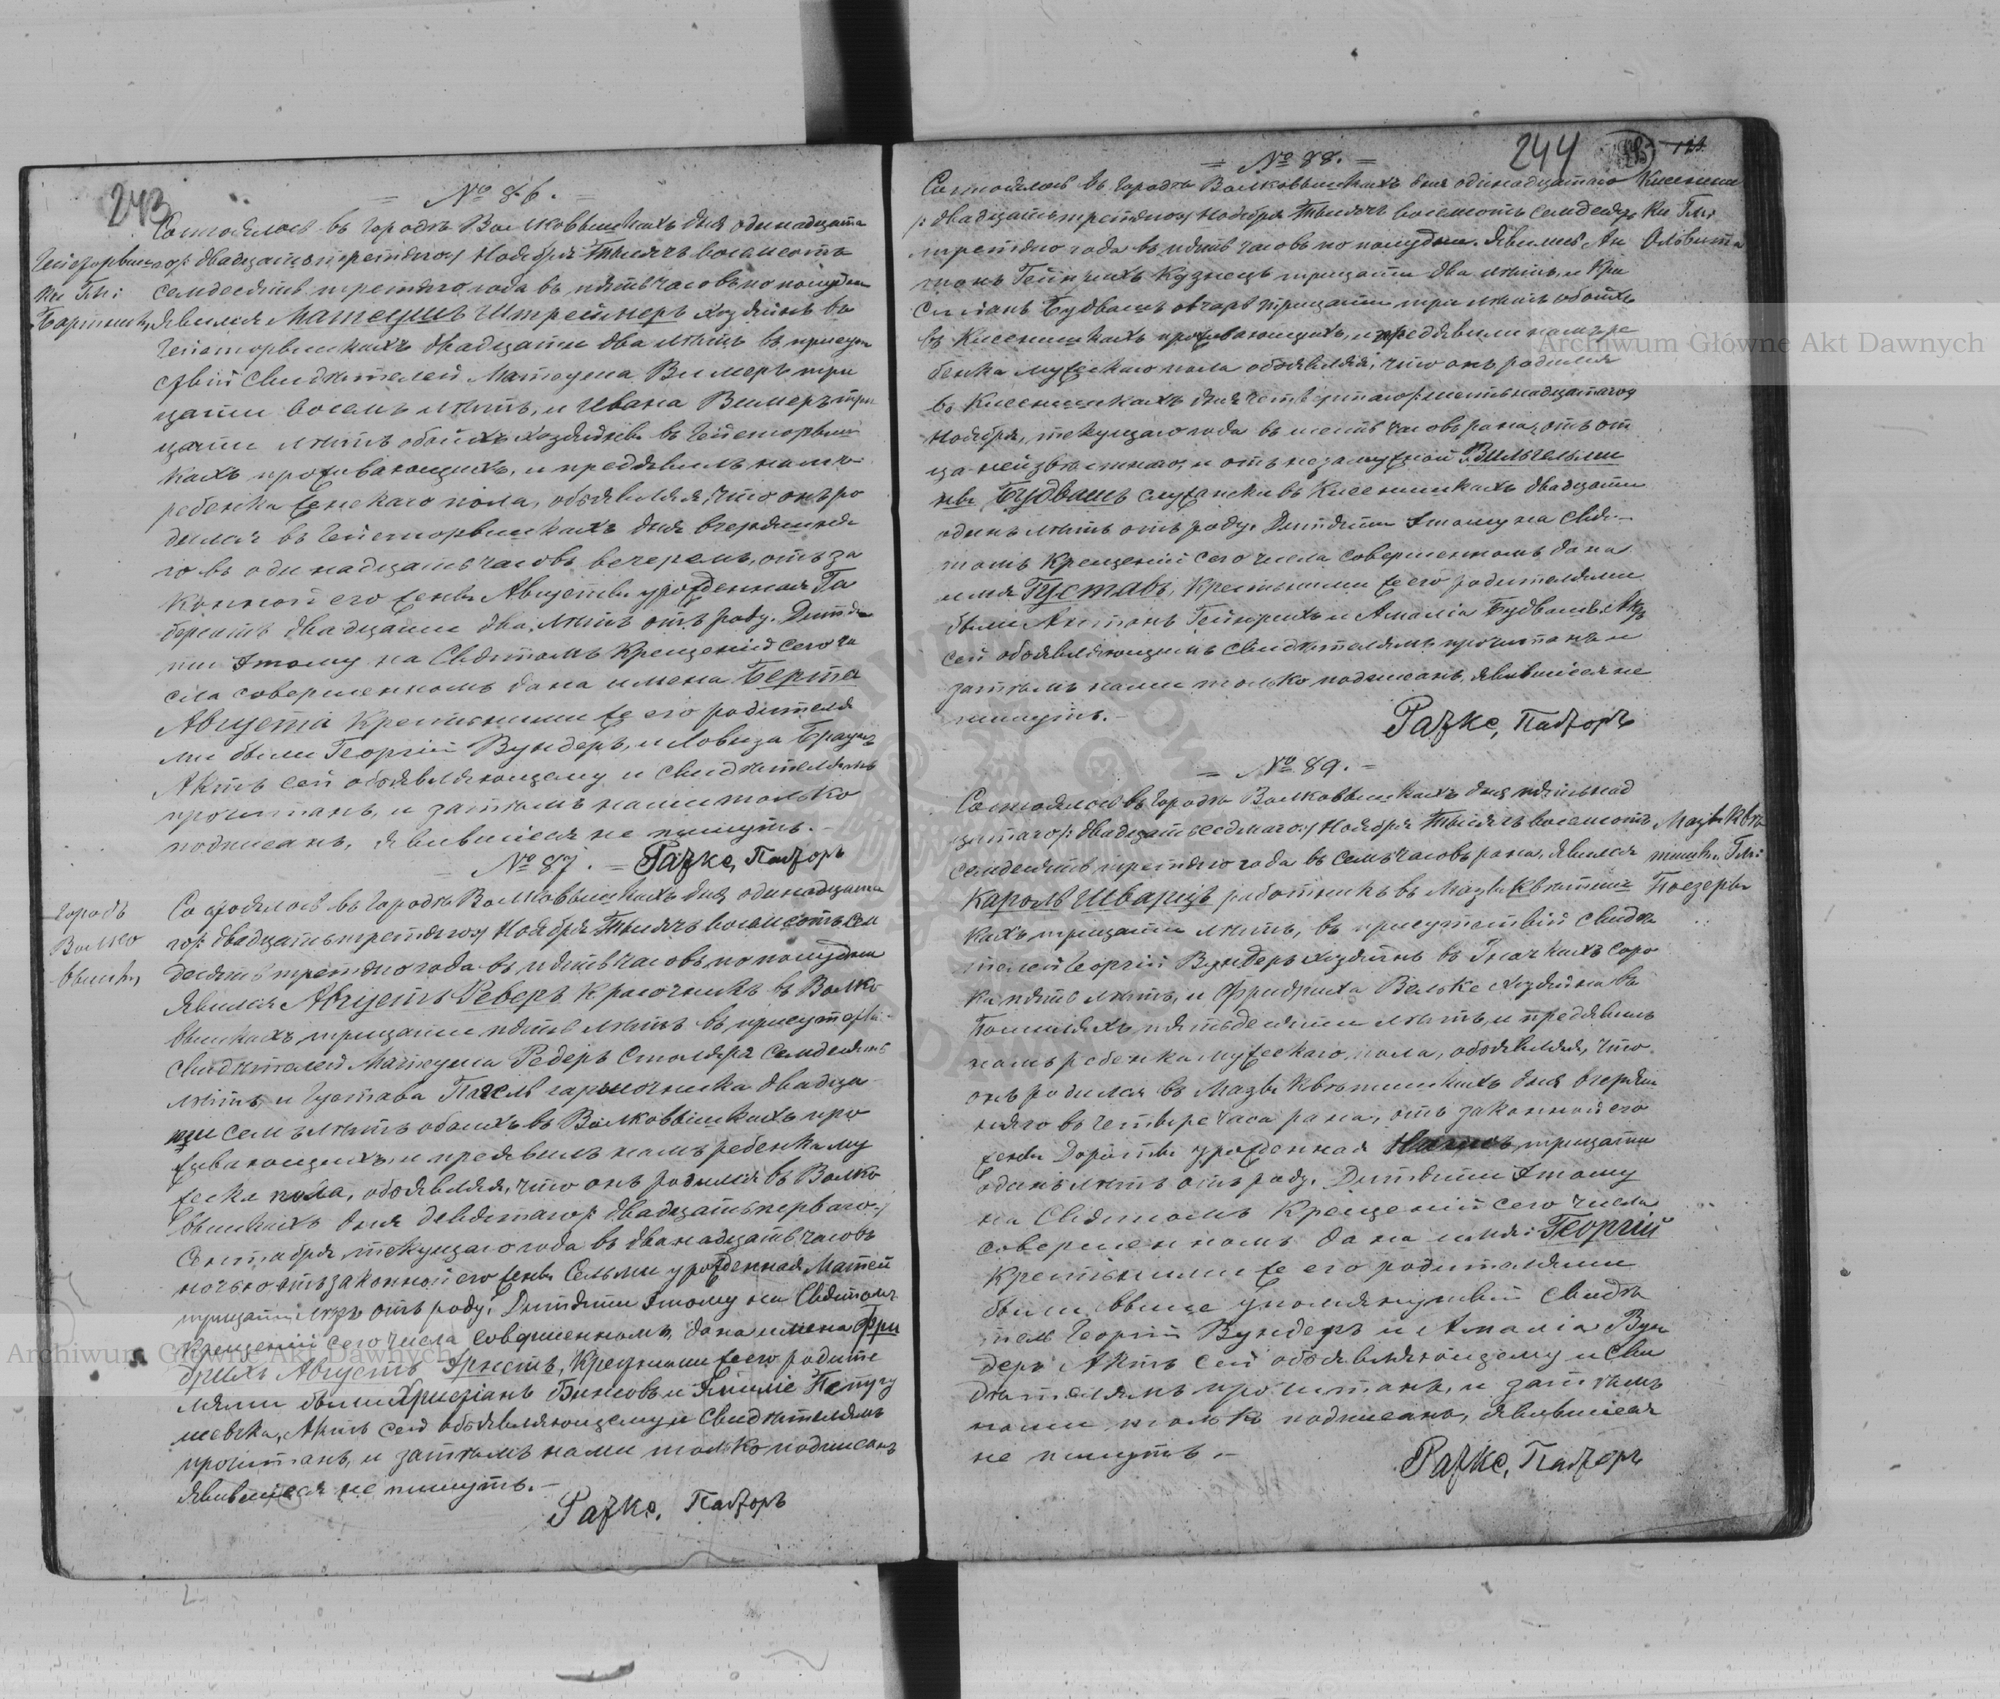 243
= № 86. =
Состоялось въ городѣ Волковышкахъ дня одинадцата
го /: двадцать третяго :/ Ноября Тысяча восемьсотъ
семдесятъ третяго года въ пять часовъ по полудни
явился Матеушъ Штреймеръ хозяинъ въ
двадцати два лѣтъ въ присут
ствіи Свидѣтелей Матеуша Вимеръ три
цати восемь лѣтъ, и Ивана Вимеръ три
цати лѣтъ обойхъ хозяиновъ въ
кахъ проживающихъ, и предявилъ намъ
ребенка женскаго пола, объявляя, что онъ ро
дился въ дня вчерашня
го въ одинадцать часовъ вечеромъ, отъ за
конной его жены Августы урожденная Га
бернатъ двадцати два лѣтъ отъ роду. Дитя
ти этому на Святомъ Крещеніи сего чи
сла совершенномъ дана имена Берта
Августа Крестными же его родителя
ми были Георгій Вундеръ, и Ловиза Браунъ
Актъ сей объявляющему и свидѣтелямъ
прочитанъ, и затѣмъ нами только
подписанъ, явившіеся не пишутъ. –
№ 87. = Ражке, Пасторъ
городъ
Волко
вышки
Состоялось въ городѣ Волковышкахъ дня одинадцата
го /: двадцать третяго :/ Ноября Тысяча восемьсотъ сем
десятъ третяго года въ пять часовъ по полудни
явился Августъ Реберъ красочникъ въ Волко
вышкахъ трицати пять лѣтъ въ присутствіи
Свидѣтелей Матеуша Редеръ Столяра семдесятъ
лѣтъ, и Густава Пагель гарночника двадца
ти семъ лѣтъ обоихъ въ Волковышкахъ про
живающихъ, и предявилъ намъ ребенка му
жеска пола, объявляя, что онъ родился въ Волко
вышкахъ дня девятаго /: двадцать перваго :/
Октября текущаго года въ дванадцать часовъ
ночью отъ законной его жены Сельмы урожденная Матей
трицати лѣтъ отъ роду. Дитяти этому на Святомъ
Крещеніи сего числа совершенномъ дана имена Фри
дрихъ Августъ Эрнстъ, Крестными же его родите
лями были Христіанъ и Эмиліе
Актъ сей объявляющему и Свидѣтелямъ
прочитанъ, и затѣмъ нами только подписанъ
явившіеся не пишутъ. –
Ражке, Пасторъ
244
= № 88. =
Состоялось въ городѣ Волковышкахъ дня одинадцатаго
/: двадцать третяго :/ Ноября Тысяча восемьсотъ семдесятъ
третяго года въ пять часовъ по полудни. Явились Ан
тонъ Гейнрихъ Кузнецъ трицати два лѣтъ, и Кри
стіанъ Будвашъ овчаръ трицати три лѣтъ обоихъ
въ Кисенишкахъ проживающихъ, и предявили намъ ре
бенка мужескаго пола объявляя, что онъ родился
въ Кисенишкахъ дня четвертаго /: шестьнадцатаго :/
Ноября, текущаго года въ шесть часовъ рана, отъ от
ца неизвѣстнаго, и отъ незамужной Вильгельми
ны Будвашъ служанки въ Кисенишкахъ двадцати
одинъ лѣтъ отъ роду. Дитяти этому на Свя
томъ Крещеніи сего числа совершенномъ дана
имя Густавъ, Крестными же его родителями
были Антонъ Гейнрихъ и Амалія Будвашъ. Актъ
сей объявляющимъ свидѣтелямъ прочитанъ и
затѣмъ нами только подписанъ, явившіеся не
пишутъ. –
Ражке, Пасторъ
= № 89. =
Состоялось въ городѣ Волковышкахъ дня пятьнад
цатаго /: двадцать седмаго :/ Ноября Тысяча восемьсотъ
семдесятъ третяго года въ семъ часовъ рана, явился
Кароль Шварцъ работникъ въ Мазы Квѣтиш
кахъ трицати лѣтъ, въ присутствіи свидѣ
телей Георгій Вундеръ хозяинъ въ соро
ка пять лѣтъ, и Фридриха Вельке хозяина въ
пятьдесяти лѣтъ, и предявилъ
намъ ребенка мужескаго пола, объявляя, что
онъ родился въ Мазы Квѣтишкахъ дня вчераш
няго въ четыре часа рана, отъ законной его
жены Дороты урожденная трицати
одинъ лѣтъ отъ роду. Дитяти этому
на Святомъ Крещеніи сего числа
совершенномъ дана имя: Георгій
Крестными же его родителями
были выше упомянутый свидѣ
тель Георгій Вундеръ и Амалія Вун
деръ Актъ сей объявляющему и Сви
дѣтелямъ прочитанъ, и затѣмъ
нами только подписанъ, явившіеся
не пишутъ. –
Ражке, Пасторъ
Archiwum Główne Akt Dawnych
Archiwum Główne Akt Dawnych